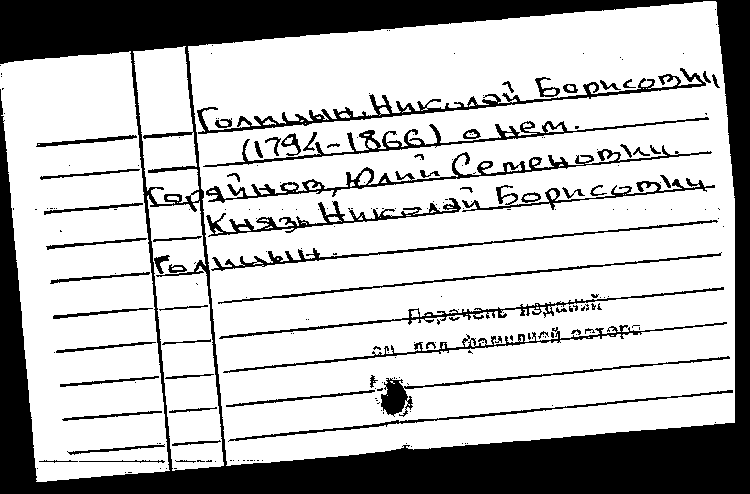 Голицын, Николай Борисович
(1794-1866) о нем.
Горяйнов, Юлий Семенович.
Князь Николай Борисович
Голицын.
Перечень изданий
см. под фамилией автора